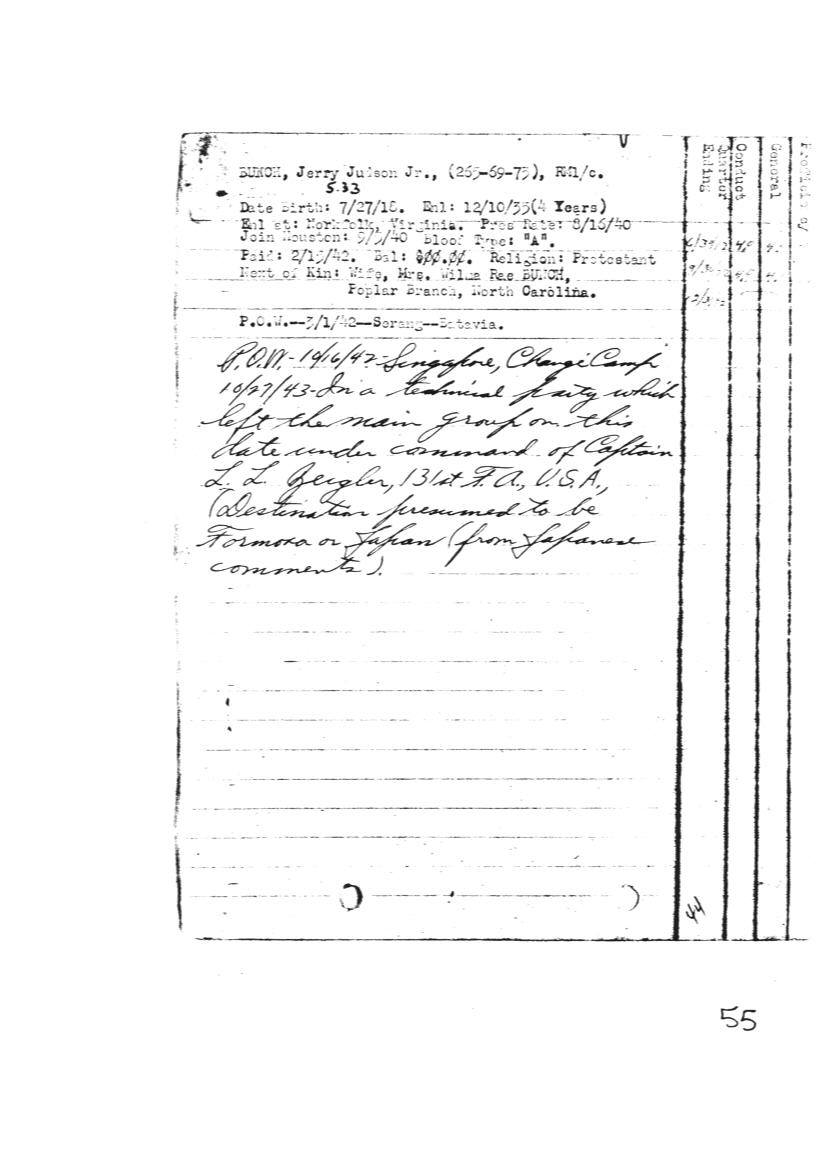 BUNCH, Jerry Judson Jr., (265-69-75), RM1/c.
5.33
Date Birth: 7/27/18. Enl: 12/10/35(4 Years)
Enl at: Norkfolk, Virginia. Pres Rate: 8/16/40
Join Houston: 9/5/40 Bloof Type: "A".
Paid: 2/15/42. Bal: Religion: Protestant
Next of Kin: Wife, Mrs. Wilma Rae BUNCH,
Poplar Branch, North Carolina.
P.O.W.--3/1/42--Serang--Batavia.
P.O.W.- 10/16/42-Singapore, Changi Camp
10/27/43-In a technical party which
left the main group on this
date under command of Captain
L. L. Zeigler, 131st F.A., U.S.A.,
(Destination presumed to be
Formosa or Japan (from Japanese
comments).
Quarter Ending
Conduct
General
44
55